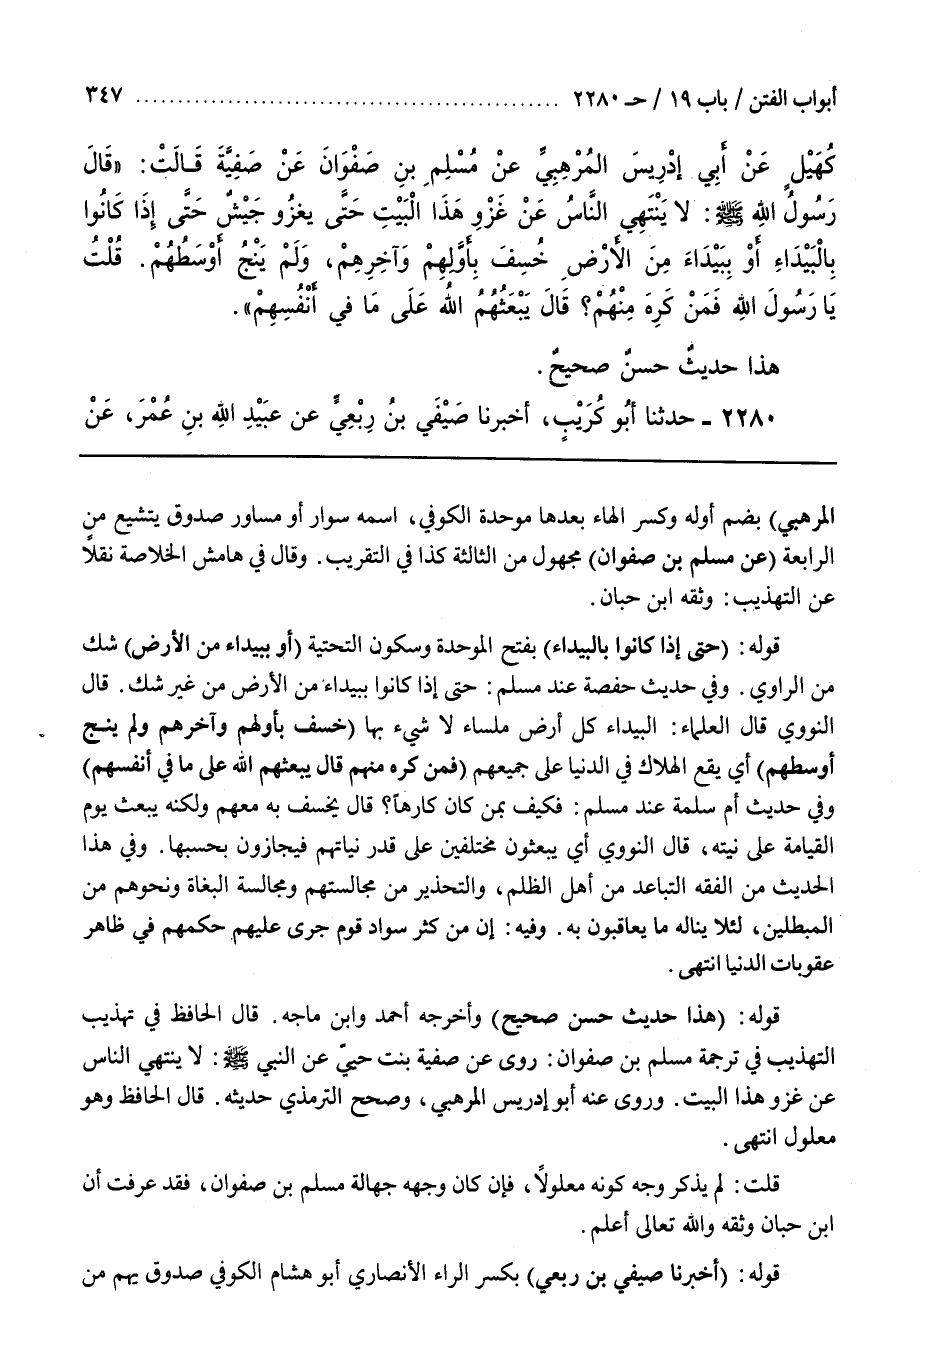 أبواب الفتن / باب ١٩ / حـ ٢٢٨٠ ................................................ ٣٤٧
كُهَيْلٍ عَنْ أَبِي إدْرِيسَ المُرْهِبِيِّ عنْ مُسْلِمِ بنِ صَفْوَانَ عَنْ صَفِيَّةَ قَـالَتْ: «قَالَ
رَسُولُ اللهِ ﷺ: لا يَنْتَهِي النَّاسُ عَنْ غَزْوِ هَذَا الْبَيْتِ حَتَّى يغزُو جَيْشٌ حَتَّى إِذَا كَانُوا
بِالْبَيْدَاءِ أَوْ بِبَيْدَاءَ مِنَ الْأَرْضِ خُسِفَ بِأَوَّلِهِمْ وَآخِرِهِمْ، وَلَمْ يَنْجُ أَوْسَطُهُمْ. قُلْتُ
يَا رَسُولَ اللهِ فَمَنْ كَرِهَ مِنْهُمْ؟ قَالَ يَبْعَثُهُمُ اللهُ عَلَى مَا في أَنْفُسِهِمْ».
هذا حديثٌ حسنٌ صحيحٌ.
٢٢٨٠ ـ حدثنا أبُو كُرَيْبٍ، أخبرنا صَيْفَي بنُ رِبْعِيٍّ عن عبَيْدِ اللهِ بنِ عُمْرَ، عَنْ
المرهبي) بضم أوله وكسر الهاء بعدها موحدة الكوفي، اسمه سوار أو مساور صدوق يتشيع من
الرابعة (عن مسلم بن صفوان) مجهول من الثالثة كذا في التقريب. وقال في هامش الخلاصة نقلاً
عن التهذيب: وثقه ابن حبان.
قوله: (حتى إذا كانوا بالبيداء) بفتح الموحدة وسكون التحتية (أو ببيداء من الأرض) شك
من الراوي. وفي حديث حفصة عند مسلم: حتى إذا كانوا ببيداء من الأرض من غير شك. قال
النووي قال العلماء: البيداء كل أرض ملساء لا شيء بها (خسف بأولهم وآخرهم ولم ينـج
أوسطهم) أي يقع الهلاك في الدنيا على جميعهم (فمن كره منهم قال يبعثهم الله على ما في أنفسهم)
وفي حديث أم سلمة عند مسلم: فكيف بمن كان كارهاً؟ قال يخسف به معهم ولكنه يبعث يوم
القيامة على نيته، قال النووي أي يبعثون مختلفين على قدر نياتهم فيجازون بحسبها. وفي هذا
الحديث من الفقه التباعد من أهل الظلم، والتحذير من مجالستهم ومجالسة البغاة ونحوهم من
المبطلين، لئلا يناله ما يعاقبون به. وفيه: إن من كثر سواد قوم جرى عليهم حكمهم في ظاهر
عقوبات الدنيا انتهى.
قوله: (هذا حديث حسن صحيح) وأخرجه أحمد وابن ماجه. قال الحافظ في تهذيب
التهذيب في ترجمة مسلم بن صفوان: روى عن صفية بنت حييّ عن النبي ﷺ: لا ينتهي الناس
عن غزو هذا البيت. وروى عنه أبو إدريس المرهبي، وصحح الترمذي حديثه. قال الحافظ وهو
معلول انتهى.
قلت: لم يذكر وجه كونه معلولاً، فإن كان وجهه جهالة مسلم بن صفوان، فقد عرفت أن
ابن حبان وثقه والله تعالى أعلم.
قوله: (أخبرنا صيفي بن ربعي) بكسر الراء الأنصاري أبو هشام الكوفي صدوق يهم من